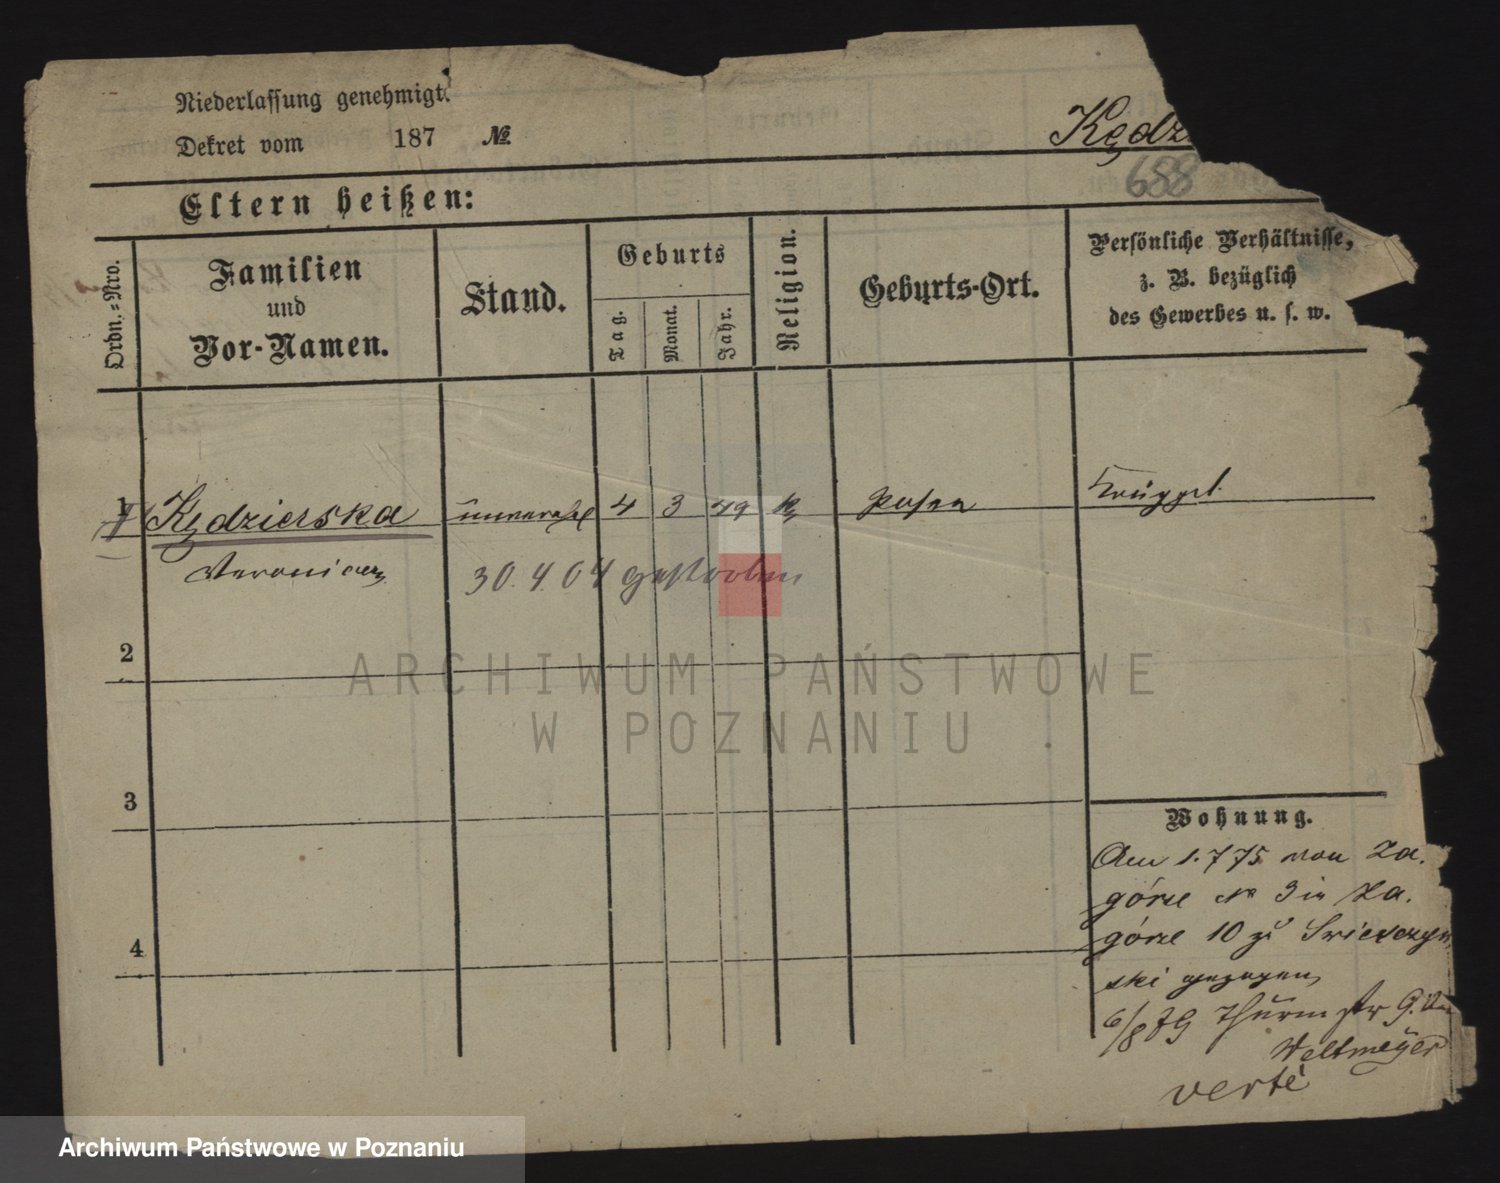 Niederlassung genehmigt.
Dekret vom 187 №
Kędz
688
Eltern heißen:
Ordn.=Nro.
Familien
und
Vor-Namen.
Stand.
Geburts
Tag.
Monat.
Jahr.
Religion.
Geburts-Ort.
Persönliche Verhältnisse,
z. B. bezüglich
des Gewerbes u. s. w.
1 Kędzierska 4 3 49 K Posen
30. 4. 04 gestorben
2
3
4
Wohnung.
Am 1.7 75 von Za.
górze № 3 in Za.
górze 10 zu
ski gezogen
6/8 79 Thurmstr 9.
Weltmeyer
verte
ARCHIWUM PAŃSTWOWE
W POZNANIU
Archiwum Państwowe w Poznaniu